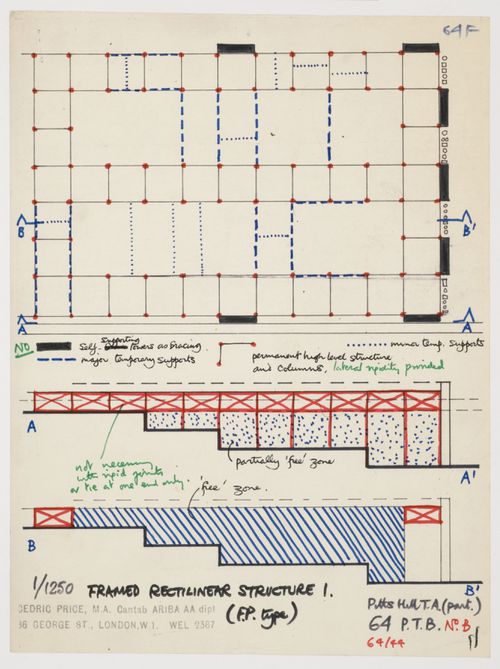 64F
B
B'
A
A'
NO
Self-Supporting Towers as bracing.
minor temp. supports
major temporary supports
permanent high level structure
and columns. lateral rigidity provided
A
not necessary
with rigid joints
or tie at one end only.
partially 'free' zone
A'
'free' zone.
B
B'
1/1250 FRAMED RECTILINEAR STRUCTURE 1.
(F.P. type)
CEDRIC PRICE, M.A. Cantab ARIBA AA dipl
36 GEORGE ST., LONDON, W.1. WEL 2387
Pitts Hill T.A. (part.)
64 P.T.B. No. B
64/44